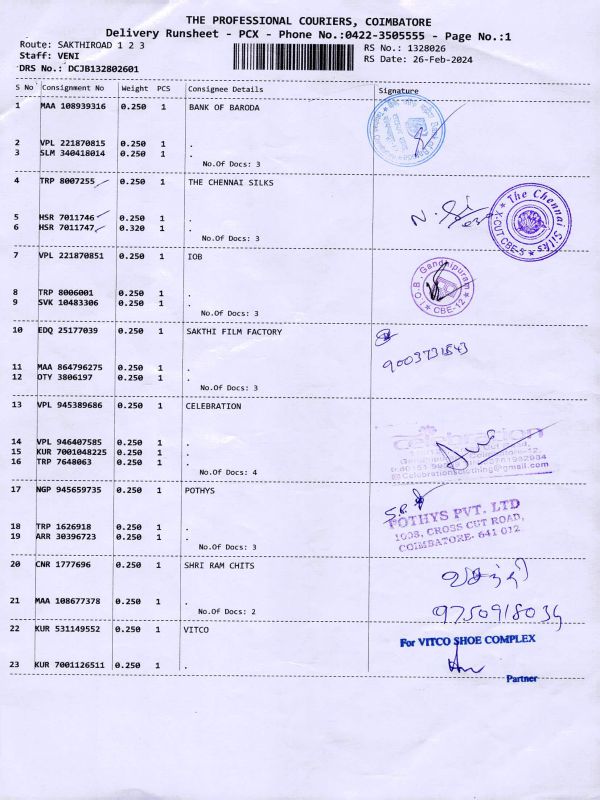 THE PROFESSIONAL COURIERS, COIMBATORE
Delivery Runsheet - PCX - Phone No.:0422-3505555 - Page No.:1
Route: SAKTHIROAD 1 2 3
RS No.: 1328026
Staff: VENI
RS Date: 26-Feb-2024
DRS No.: DCJB132802601
S No Consignment No Weight PCS Consignee Details Signature
1 MAA 108939316 0.250 1 BANK OF BARODA
2 VPL 221870815 0.250 1 .
3 SLM 340418014 0.250 1 .
No.Of Docs: 3
4 TRP 8007255 0.250 1 THE CHENNAI SILKS
The Chennai Silks
X-CUT CBE-5
5 HSR 7011746 0.250 1 .
6 HSR 7011747 0.320 1 .
No.Of Docs: 3
7 VPL 221870851 0.250 1 IOB
I.O.B. Gandhipuram
CBE-12
8 TRP 8006001 0.250 1 .
9 SVK 10483306 0.250 1 .
No.Of Docs: 3
10 EDQ 25177039 0.250 1 SAKTHI FILM FACTORY
9003731843
11 MAA 864796275 0.250 1 .
12 OTY 3806197 0.250 1 .
No.Of Docs: 3
13 VPL 945389686 0.250 1 CELEBRATION
celebration
14 VPL 946407585 0.250 1 .
15 KUR 7001048225 0.250 1 .
16 TRP 7648063 0.250 1 .
No.Of Docs: 4
17 NGP 945659735 0.250 1 POTHYS
POTHYS PVT. LTD
1008, CROSS CUT ROAD,
COIMBATORE- 641 012
18 TRP 1626918 0.250 1 .
19 ARR 30396723 0.250 1 .
No.Of Docs: 3
20 CNR 1777696 0.250 1 SHRI RAM CHITS
21 MAA 108677378 0.250 1 .
No.Of Docs: 2
9750918034
22 KUR 531149552 0.250 1 VITCO
For VITCO SHOE COMPLEX
23 KUR 7001126511 0.250 1 .
Partner